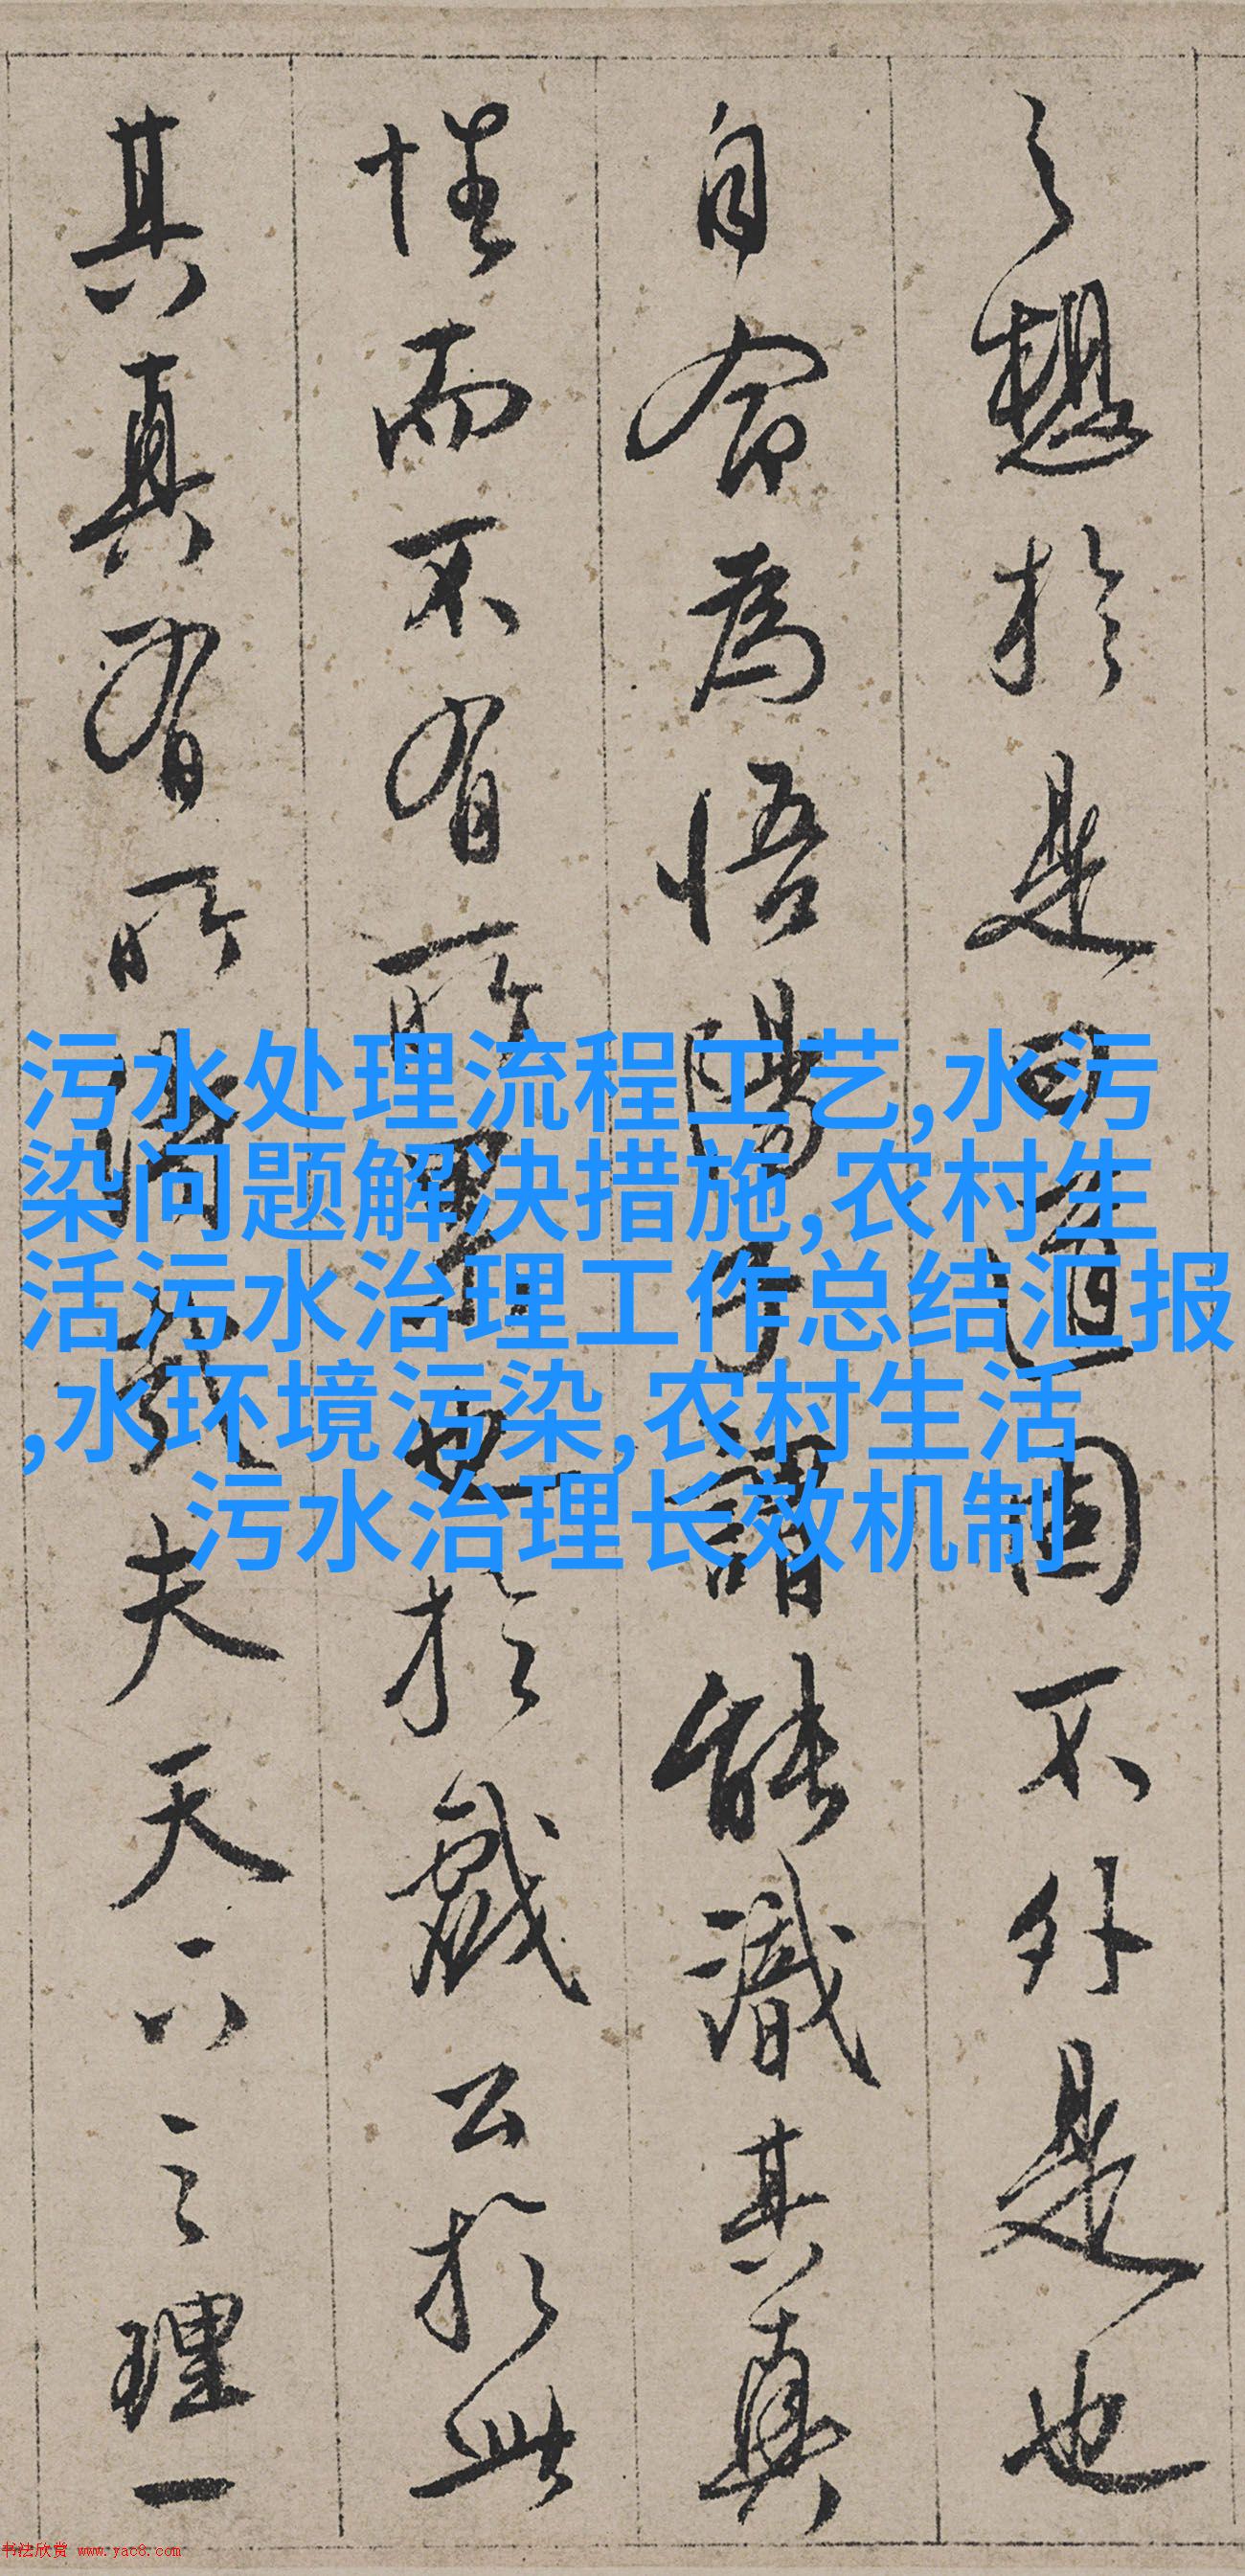 之想於是日道固不外是也
自命為悟陽子謂能識其真
性而不有所累也於戲公於此
其真有所得哉夫天下之理一
污水处理流程工艺,水污
染问题解决措施,农村生
活污水治理工作总结汇报
,水环境污染,农村生活
污水治理长效机制
书法欣赏 www.yac8.com